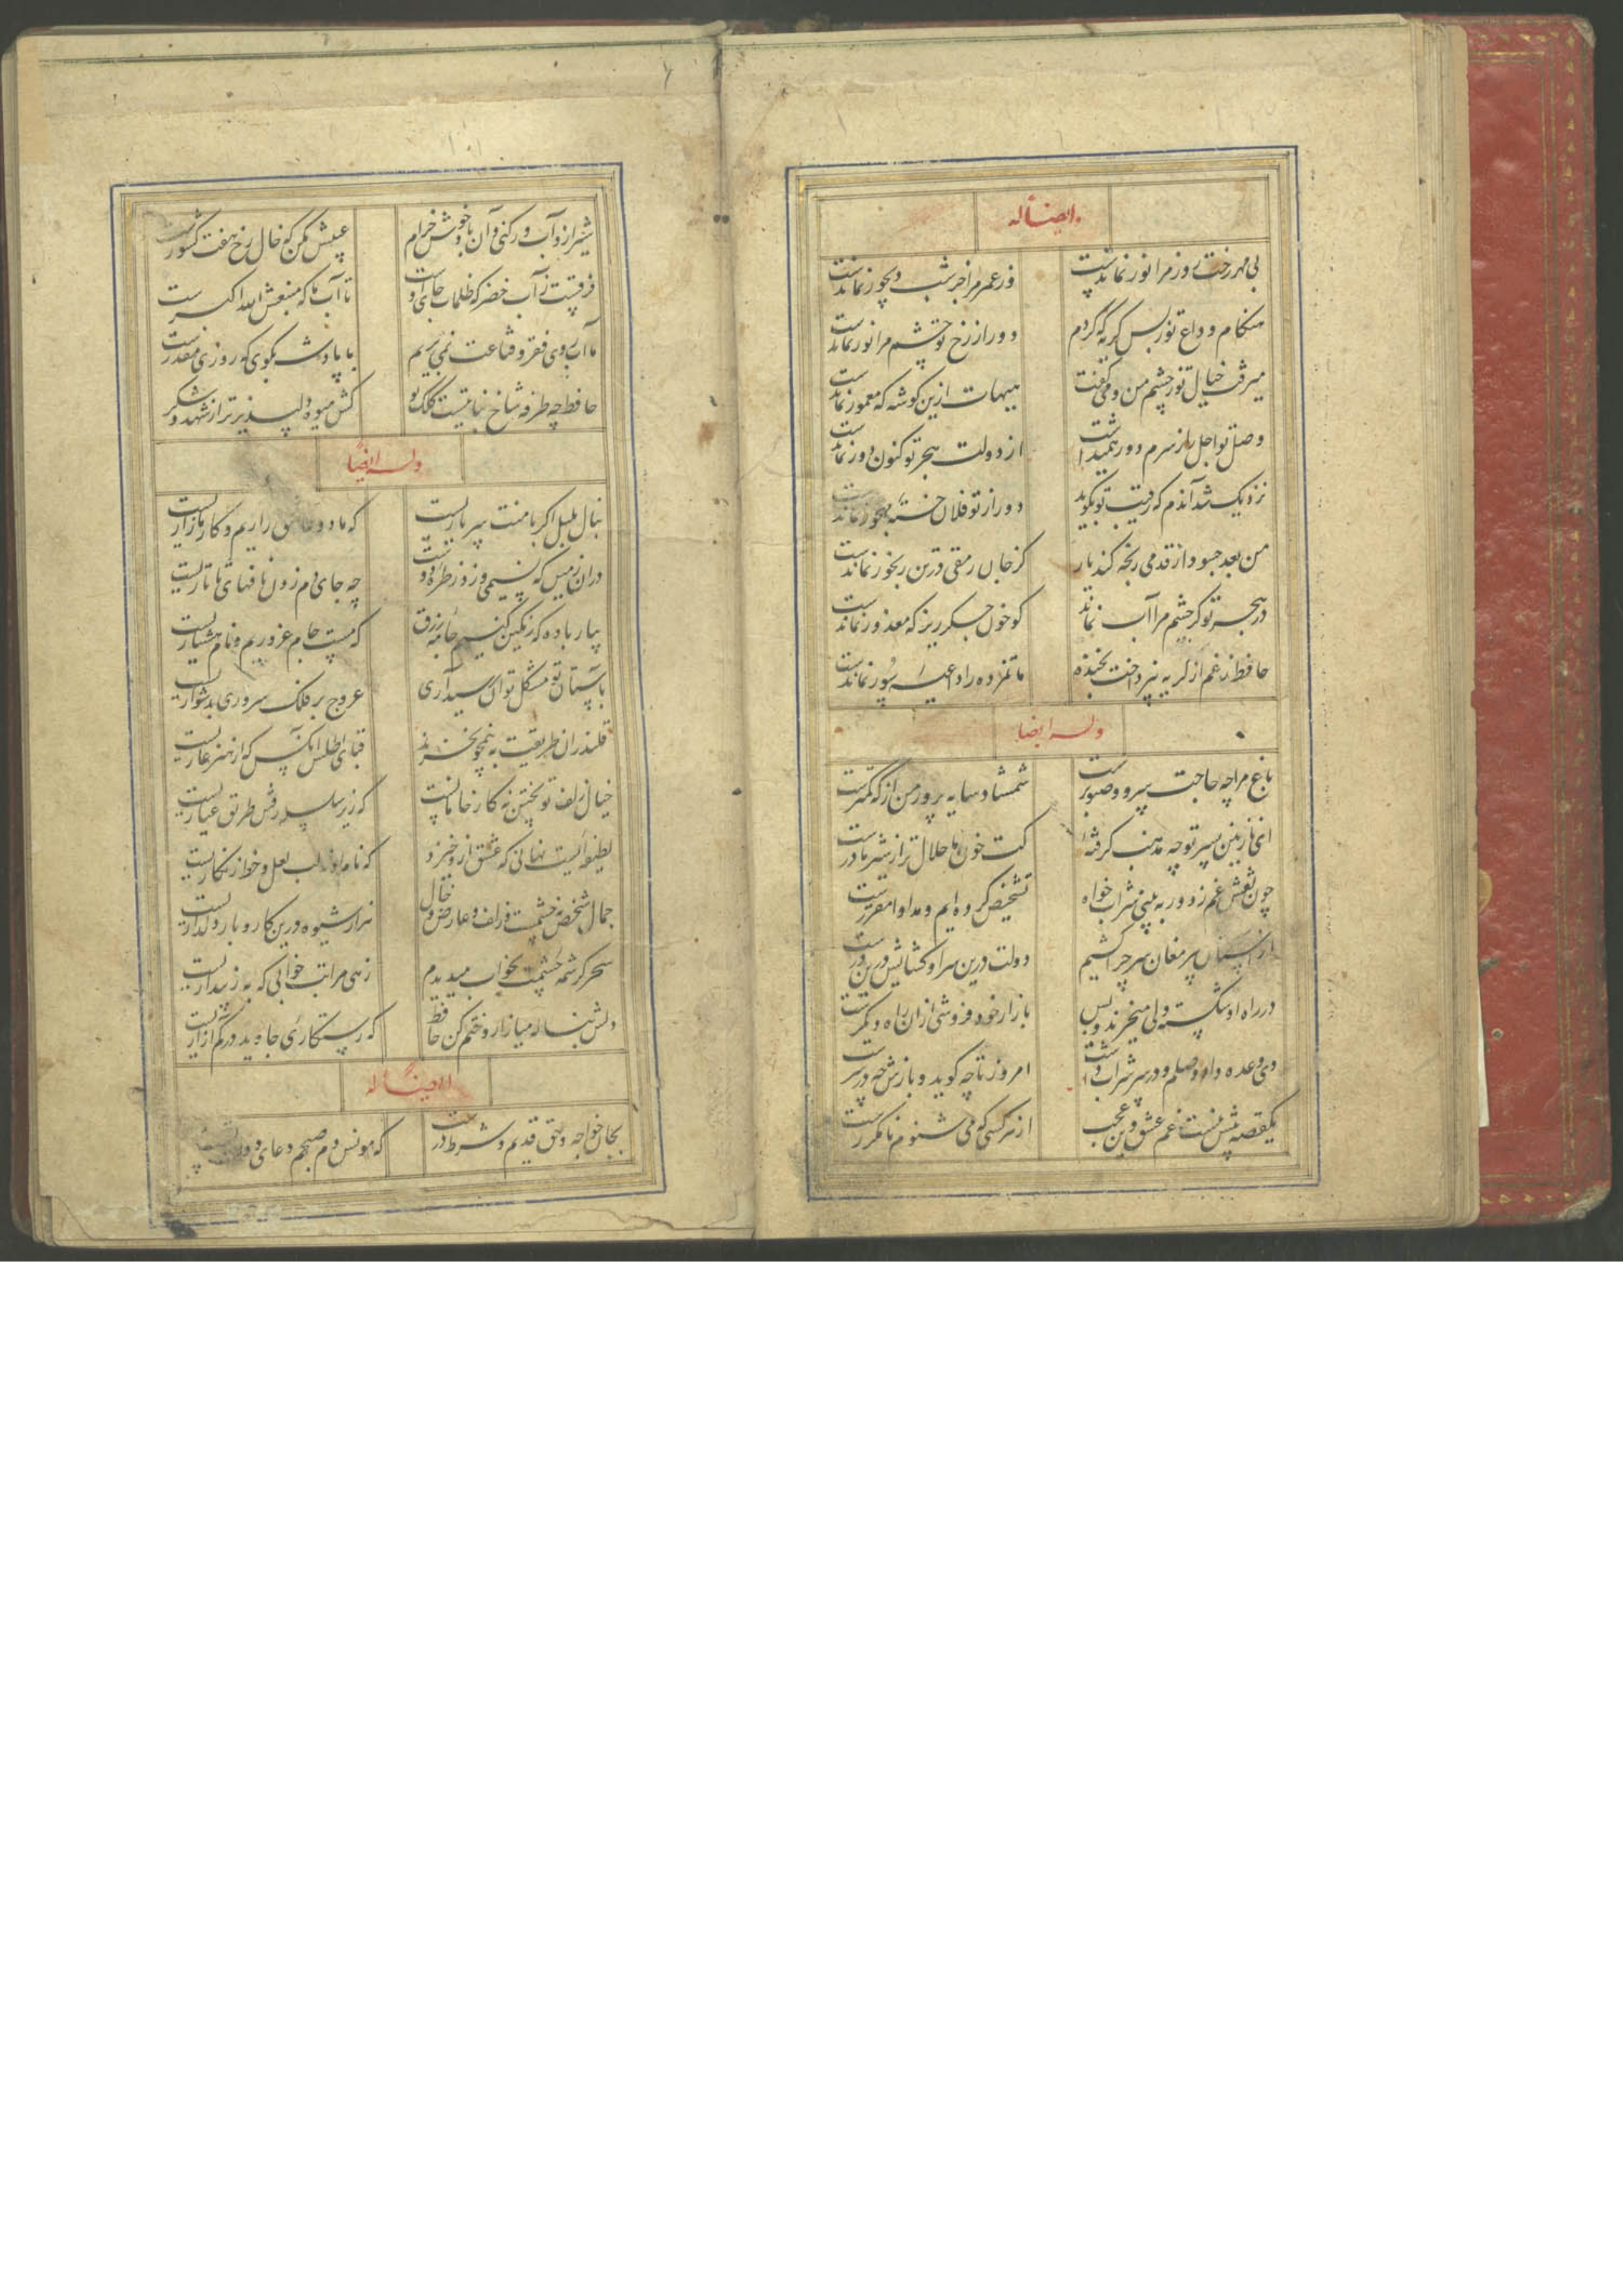 ایضاً له
بی مهر رخت روز مرا نور نماندست
وز عمر مرا جز شب دیجور نماندست
هنکام وداع تو ز بس کریه که کردم
دور از رخ تو چشم مرا نور نماندست
میرفت خیال تو ز چشم من و می کفت
هیهات ازین کوشه که معمور نماندست
وصل تو اجل را ز سرم دور همیداشت
از دولت هجر تو کنون دور نماندست
نزدیک شد آندم که رقیب تو بکوید
دور از تو فلان خسته مهجور نماندست
من بعد چه سود ار قدمی رنجه کند یار
کز جان رمقی در تن رنجور نماندست
در هجر تو کر چشم مرا آب نماند
کو خون جکر ریز که معذور نماندست
حافظ ز غم از کریه نپرداخت بخنده
ماتم زده را داعیه سور نماندست
وله ایضا
باغ مرا چه حاجت سرو و صنوبرست
شمشاد سایه پرور من از که کمترست
ای نازنین پسر تو چه مذهب کرفتهٔ
کت خون ما حلال تر از شیر مادرست
چون نقش غم ز دور به بینی شراب خواه
تشخیص کرده ایم و مداوا مقررست
از آستان پیر مغان سر چرا کشیم
دولت درین سرا و کشایش درین درست
در راه او شکسته دلی میخرند و بس
بازار خود فروشی از ان راه دیکرست
دی وعده داد وصلم و در سر شراب داشت
امروز تا چه کوید و بازش چه در سرست
یکقصه بیش نیست غم عشق وین عجب
از هر کسی که می شنوم نامکررست
شیراز و آب رکنی و آن باد خوش خرام
عیبش مکن که خال رخ هفت کشورست
فرقست ز آب خضر که ظلمات جای اوست
تا آب ما که منبعش الله اکبرست
ما آب روی فقر و قناعت نمی بریم
با پادشه بکوی که روزی مقدرست
حافظ چه طرفه شاخ نباتیست کلک تو
کش میوه دلپذیرتر از شهد و شکر
وله ایضاً
بنال بلبل اکر با منت سر یاریست
که ما دو عاشق زاریم و کار ما زاریست
در ان زمین که نسیمی وزد ز طره دوست
چه جای دم زدن نافهای تاتاریست
بیار باده که رنکین کنیم جامه زرق
که مست جام غروریم و نام هشیاریست
بآستان تو مشکل توان رسید آری
عروج بر فلک سروری بدشواریست
قلندران طریقت به نیمجو نخرند
قبای اطلس آنکس که از هنر عاریست
خیال زلف تو پختن نه کار خامانست
که زیر سلسله رفتن طریق عیاریست
لطیفه ایست نهانی که عشق ازو خیزد
که نام او نه لب لعل و خط زنکاریست
جمال شخص نه چشمست و زلف و عارض و خال
هزار شیوه درین کار و بار دلداریست
سحر کرشمه چشمت بخواب میدیدم
زهی مراتب خوابی که به ز بیداریست
دلش بناله میازار و ختم کن حافظ
که رستکاری جاوید در کم آزاریست
ایضاً له
بجان خواجه و حق قدیم و شرط درست
که مونس دم صبحم دعای دولت